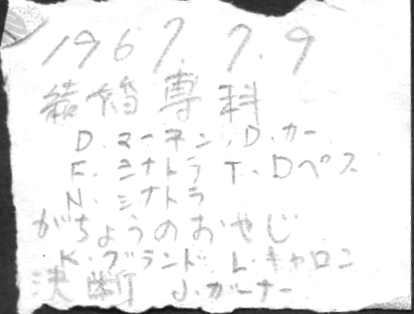 1967. 7. 9
結婚専科
D. マーチン. D. カー
F. シナトラ T. Dペス
N. シナトラ
がちょうのおやじ
K. グランド L. キャロン
決断 J. ガーナー